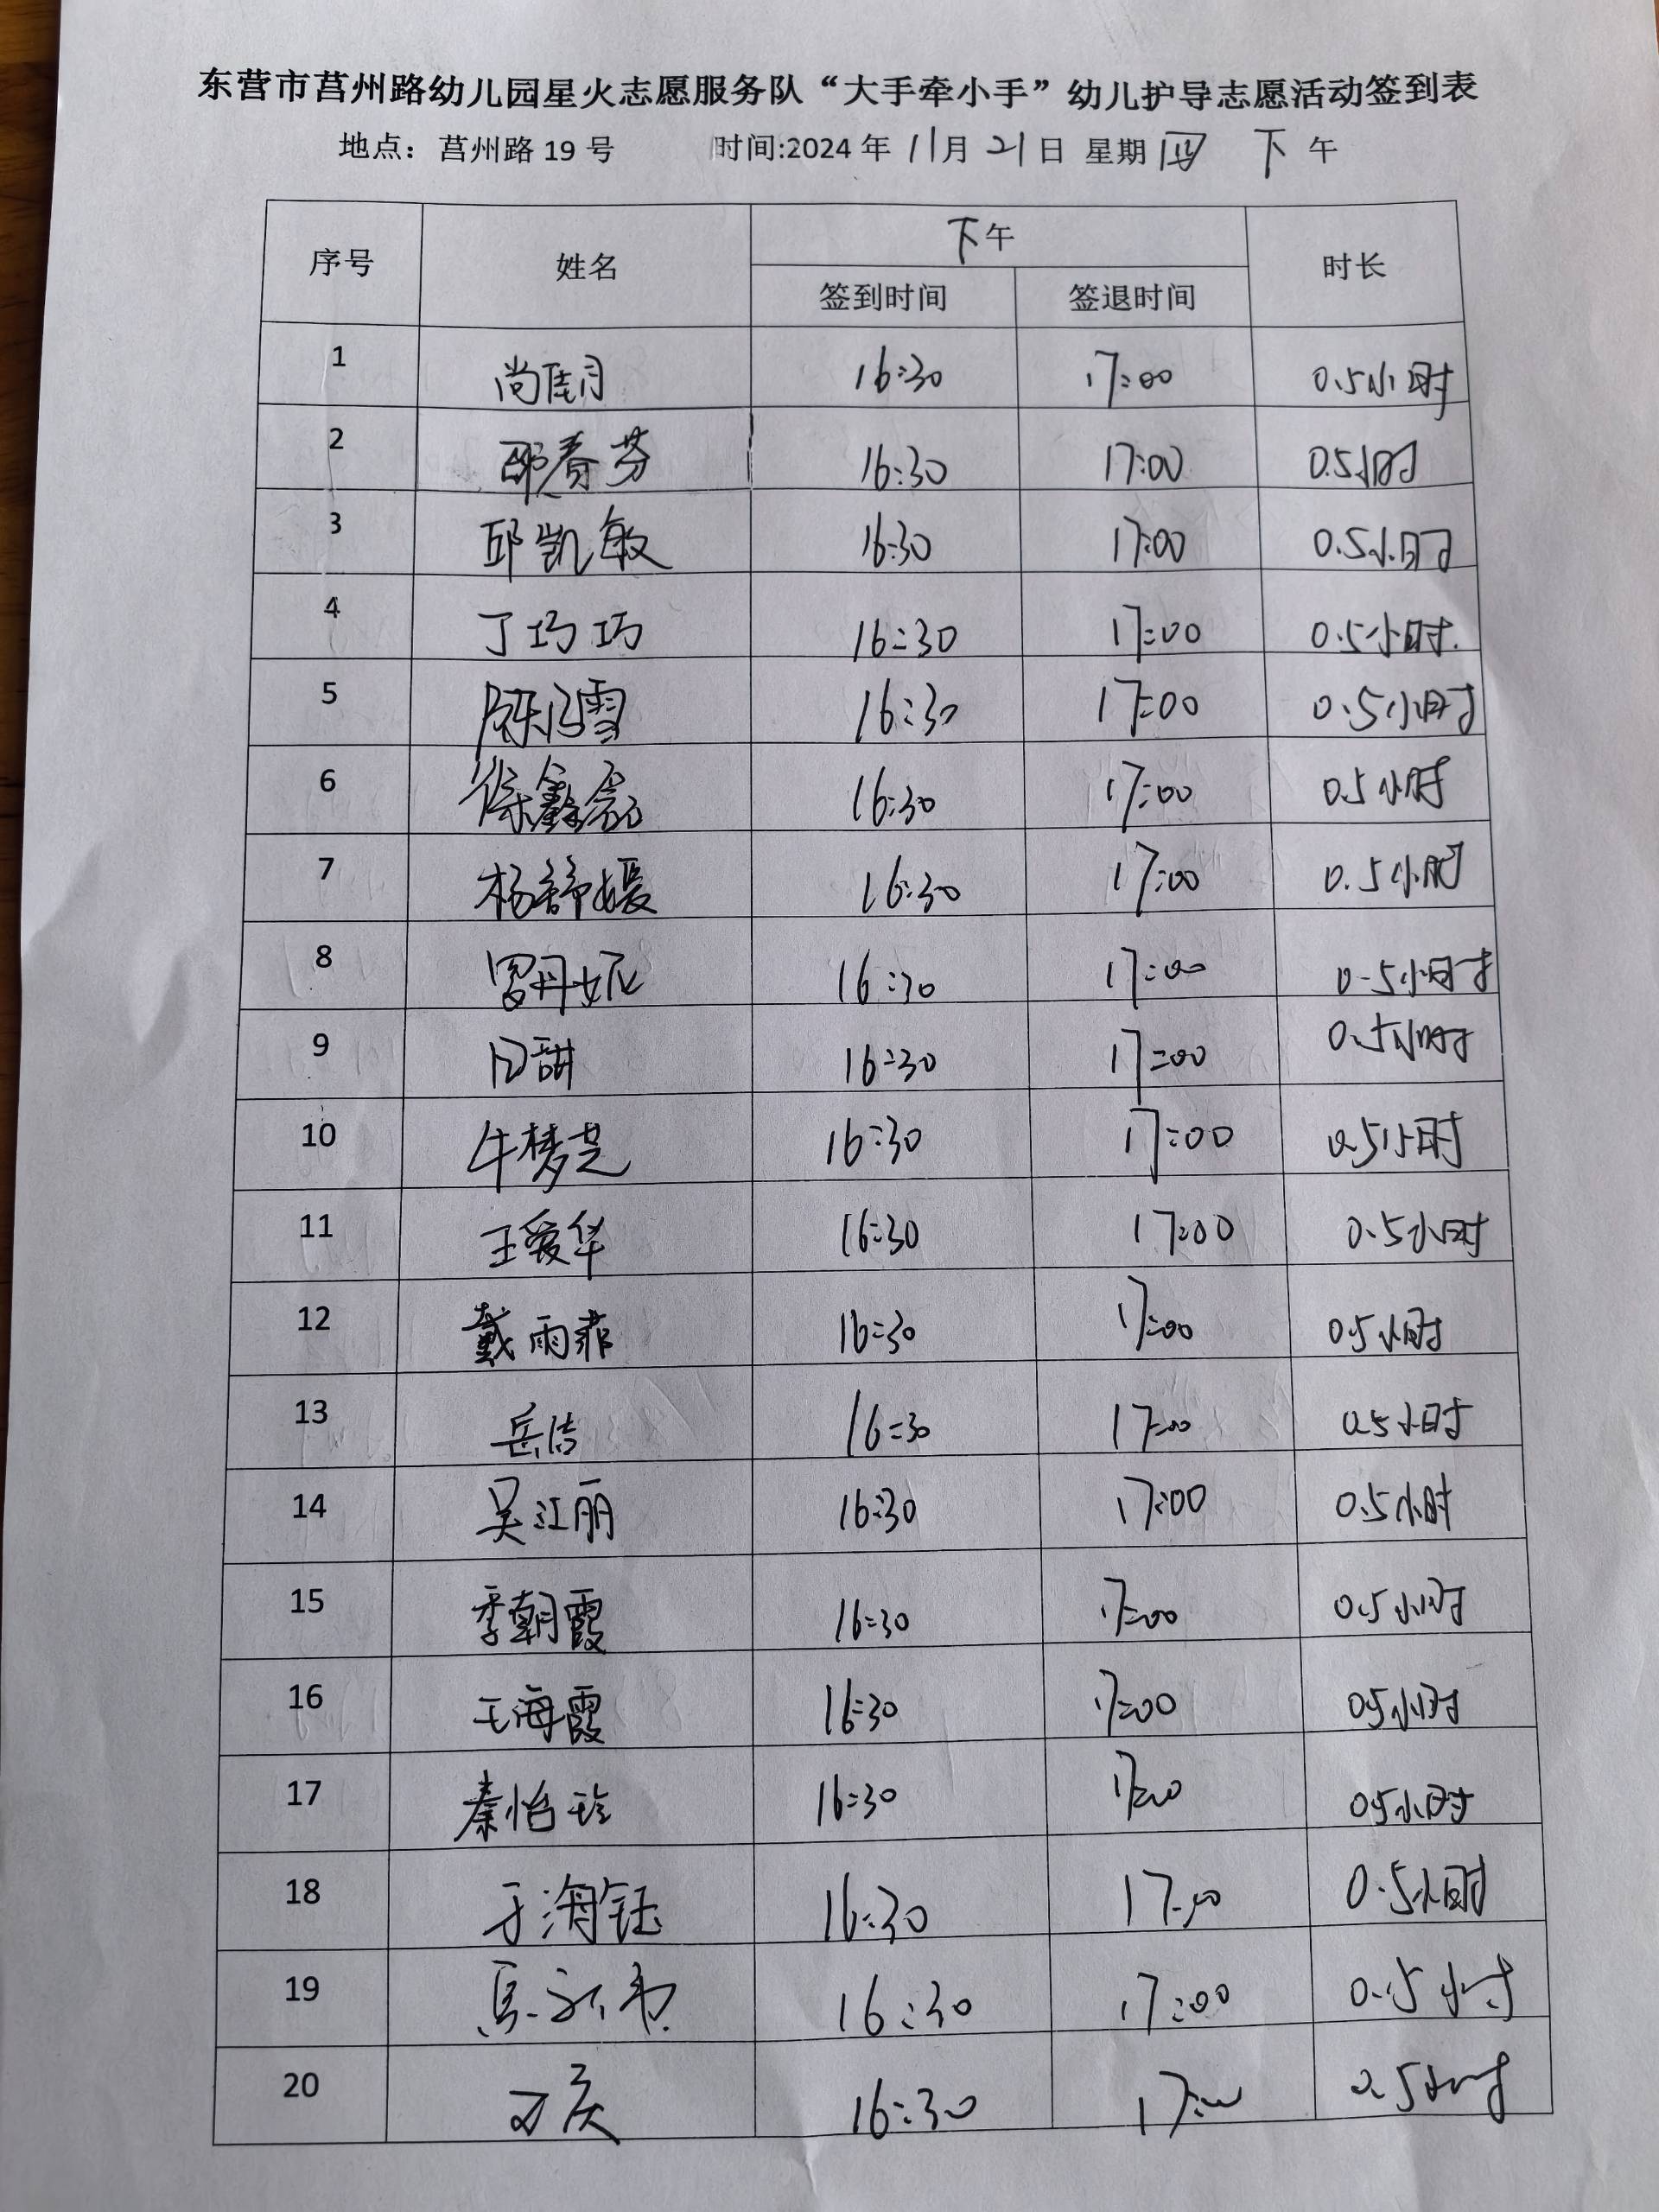 东营市莒州路幼儿园星火志愿服务队“大手牵小手”幼儿护导志愿活动签到表
地点：莒州路 19 号 时间:2024 年 11月 21日 星期 四 下 午
序号 姓名 下午 时长
签到时间 签退时间
1 尚佳月 16:30 17:00 0.5小时
2 邵春芬 16:30 17:00 0.5小时
3 邱凯敏 16:30 17:00 0.5小时
4 丁巧巧 16:30 17:00 0.5小时.
5 16:30 17:00 0.5小时
6 徐鑫磊 16:30 17:00 0.5小时
7 杨舒媛 16:30 17:00 0.5小时
8 罗丹妮 16:30 17:00 0.5小时
9 16:30 17:00 0.5小时
10 牛梦芝 16:30 17:00 0.5小时
11 王爱华 16:30 17:00 0.5小时
12 戴雨菲 16:30 17:00 0.5小时
13 岳洁 16:30 17:00 0.5小时
14 吴江丽 16:30 17:00 0.5小时
15 季朝霞 16:30 17:00 0.5小时
16 王海霞 16:30 17:00 0.5小时
17 秦怡玲 16:30 17:00 0.5小时
18 于海钰 16:30 17:00 0.5小时
19 16:30 17:00 0.5小时
20 16:30 17:00 0.5小时